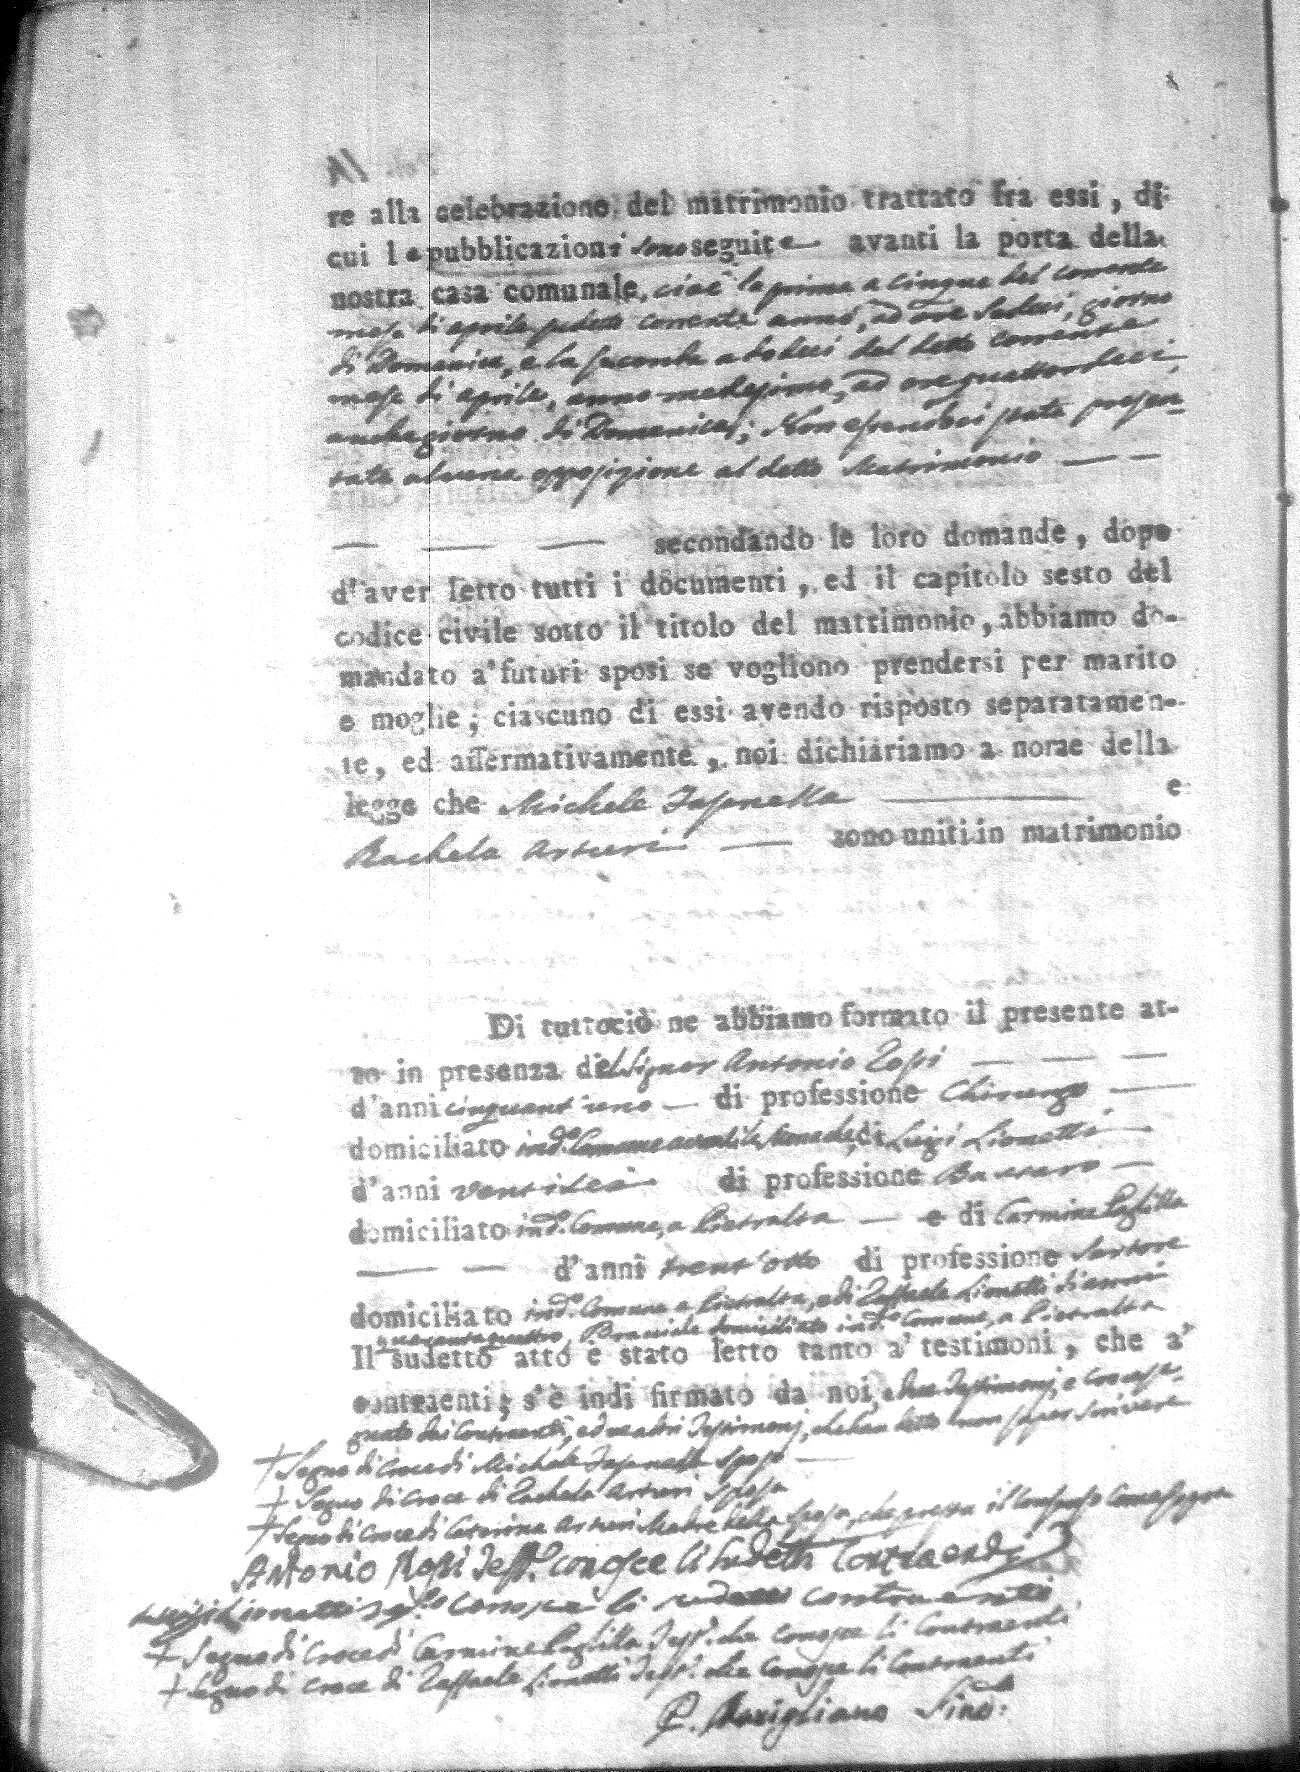 re alla celebrazione del matrimonio trattato fra essi, di
cui le pubblicazioni sono seguite avanti la porta della
nostra casa comunale, cioè la prima a cinque del corrente
mese di aprile corrente anno, ad ore sedeci, giorno
di Domenica, e la seconda a dodeci del detto corrente
mese di aprile, anno medesimo, ad ore quattordeci,
anche giorno di Domenica; Non essendoci stata presen-
tata alcuna opposizione al detto Matrimonio — —
— — — secondando le loro domande, dopo
d'aver letto tutti i documenti, ed il capitolo sesto del
codice civile sotto il titolo del matrimonio, abbiamo do-
mandato a' futuri sposi se vogliono prendersi per marito
e moglie; ciascuno di essi avendo risposto separatamen-
te, ed affermativamente, noi dichiariamo a norae della
legge che Michele Fasanella — e
Rachela Arturi — sono uniti in matrimonio
Di tuttociò ne abbiamo formato il presente at-
to in presenza del Signor Antonio Rossi — — —
d'anni cinquant'uno — di professione Chirurgo —
domiciliato ind.o Comune di Luigi Lionetti —
d'anni ventisei di professione —
domiciliato ind.o Comune, a Pietralta — e di Carmine Paglilla
— — d'anni trent'otto di professione Sartore
domiciliato ind.o Comune a Pietralta, e di Raffaele Lionetti di anni
quarantaquattro, Bracciale domiciliato ind.o Comune, a Pietralta
Il sudetto atto è stato letto tanto a' testimoni, che a'
contraenti; s'è indi firmato da noi, e due Testimonj, e crocese-
gnato dai Contraenti, ed altri Testimonj, che han detto non saper scrivere
+ Segno di croce di Michele Fasanella sposo —
+ Segno di croce di Rachela Arturi sposa
+ Segno di croce di Caterina Arturi Madre della sposa, che presta il consenso
Antonio Rossi Test.o conosce li sudetti Contraendi
Luigi Lionetti conosce li sudetti contraenti
+ Segno di croce di Carmine Paglilla Test.o che conosce li Contraenti
+ Segno di croce di Raffaele Lionetti Test.o che conosce li Contraenti
P. Mavigliano Sind.o